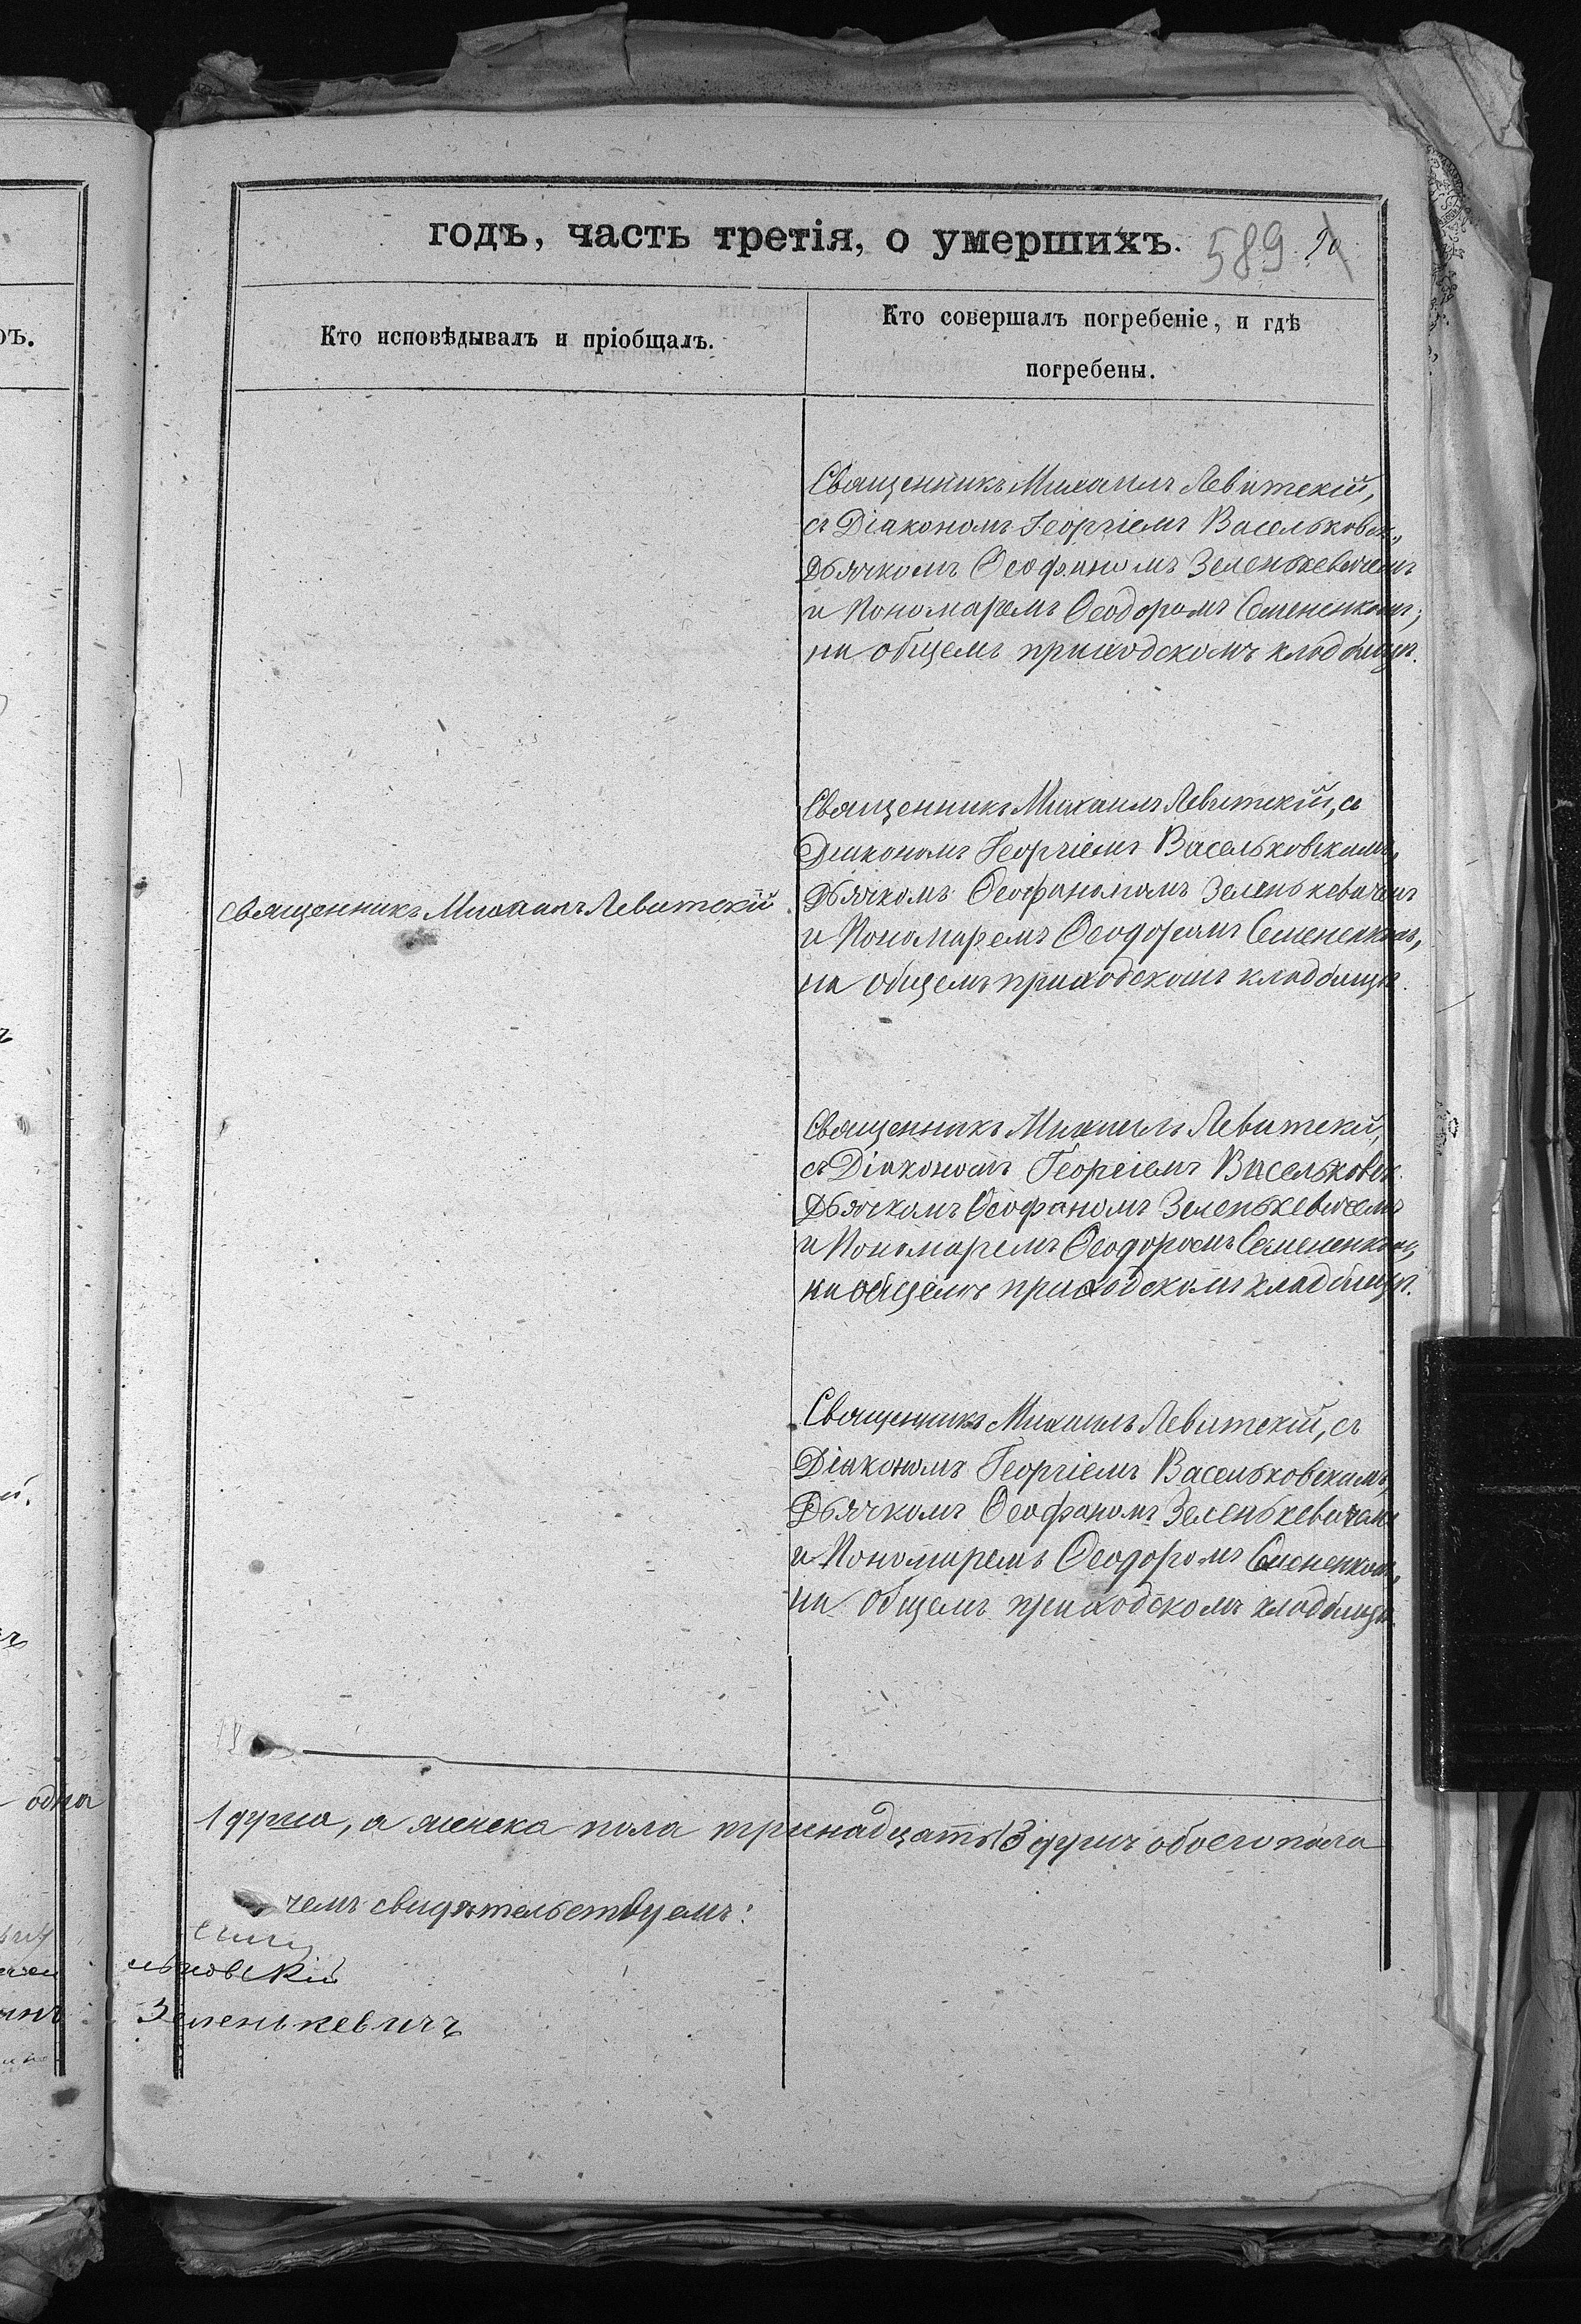 годъ, часть третія, о умершихъ. 589
Кто исповѣдывалъ и пріобщалъ.
Кто совершалъ погребеніе, и гдѣ
погребены.
Священникъ Михаилъ Левитскій,
съ Діакономъ Георгіемъ Васельковск.,
Дьячкомъ Ѳеофаномъ Зеленькевичемъ
и Пономаремъ Ѳеодоромъ Семененкомъ;
на общемъ приходскомъ кладбищѣ.
Священникъ Михаилъ Левитскій
Священникъ Михаилъ Левитскій, съ
Діакономъ Георгіемъ Васельковскимъ,
Дьячкомъ Ѳеофаномомъ Зеленькевичемъ
и Пономаремъ Ѳеодоромъ Семененкомъ,
на общемъ приходскомъ кладбищѣ.
Священникъ Михаилъ Левитскій,
съ Діакономъ Георгіемъ Васельковск.
Дьячкомъ Ѳеофаномъ Зеленькевичемъ
и Пономаремъ Ѳеодоромъ Семененкомъ,
на общемъ приходскомъ кладбищѣ.
Священникъ Михаилъ Левитскій, съ
Діакономъ Георгіемъ Васельковскимъ,
Дьячкомъ Ѳеофаномъ Зеленькевичемъ
и Пономаремъ Ѳеодоромъ Семененкомъ,
на общемъ приходскомъ кладбищѣ
одна
1 душа, а женска пола тринадцать 13 душъ обоего пола
чемъ свидѣтельствуемъ:
льковскій
Зеленькевичъ